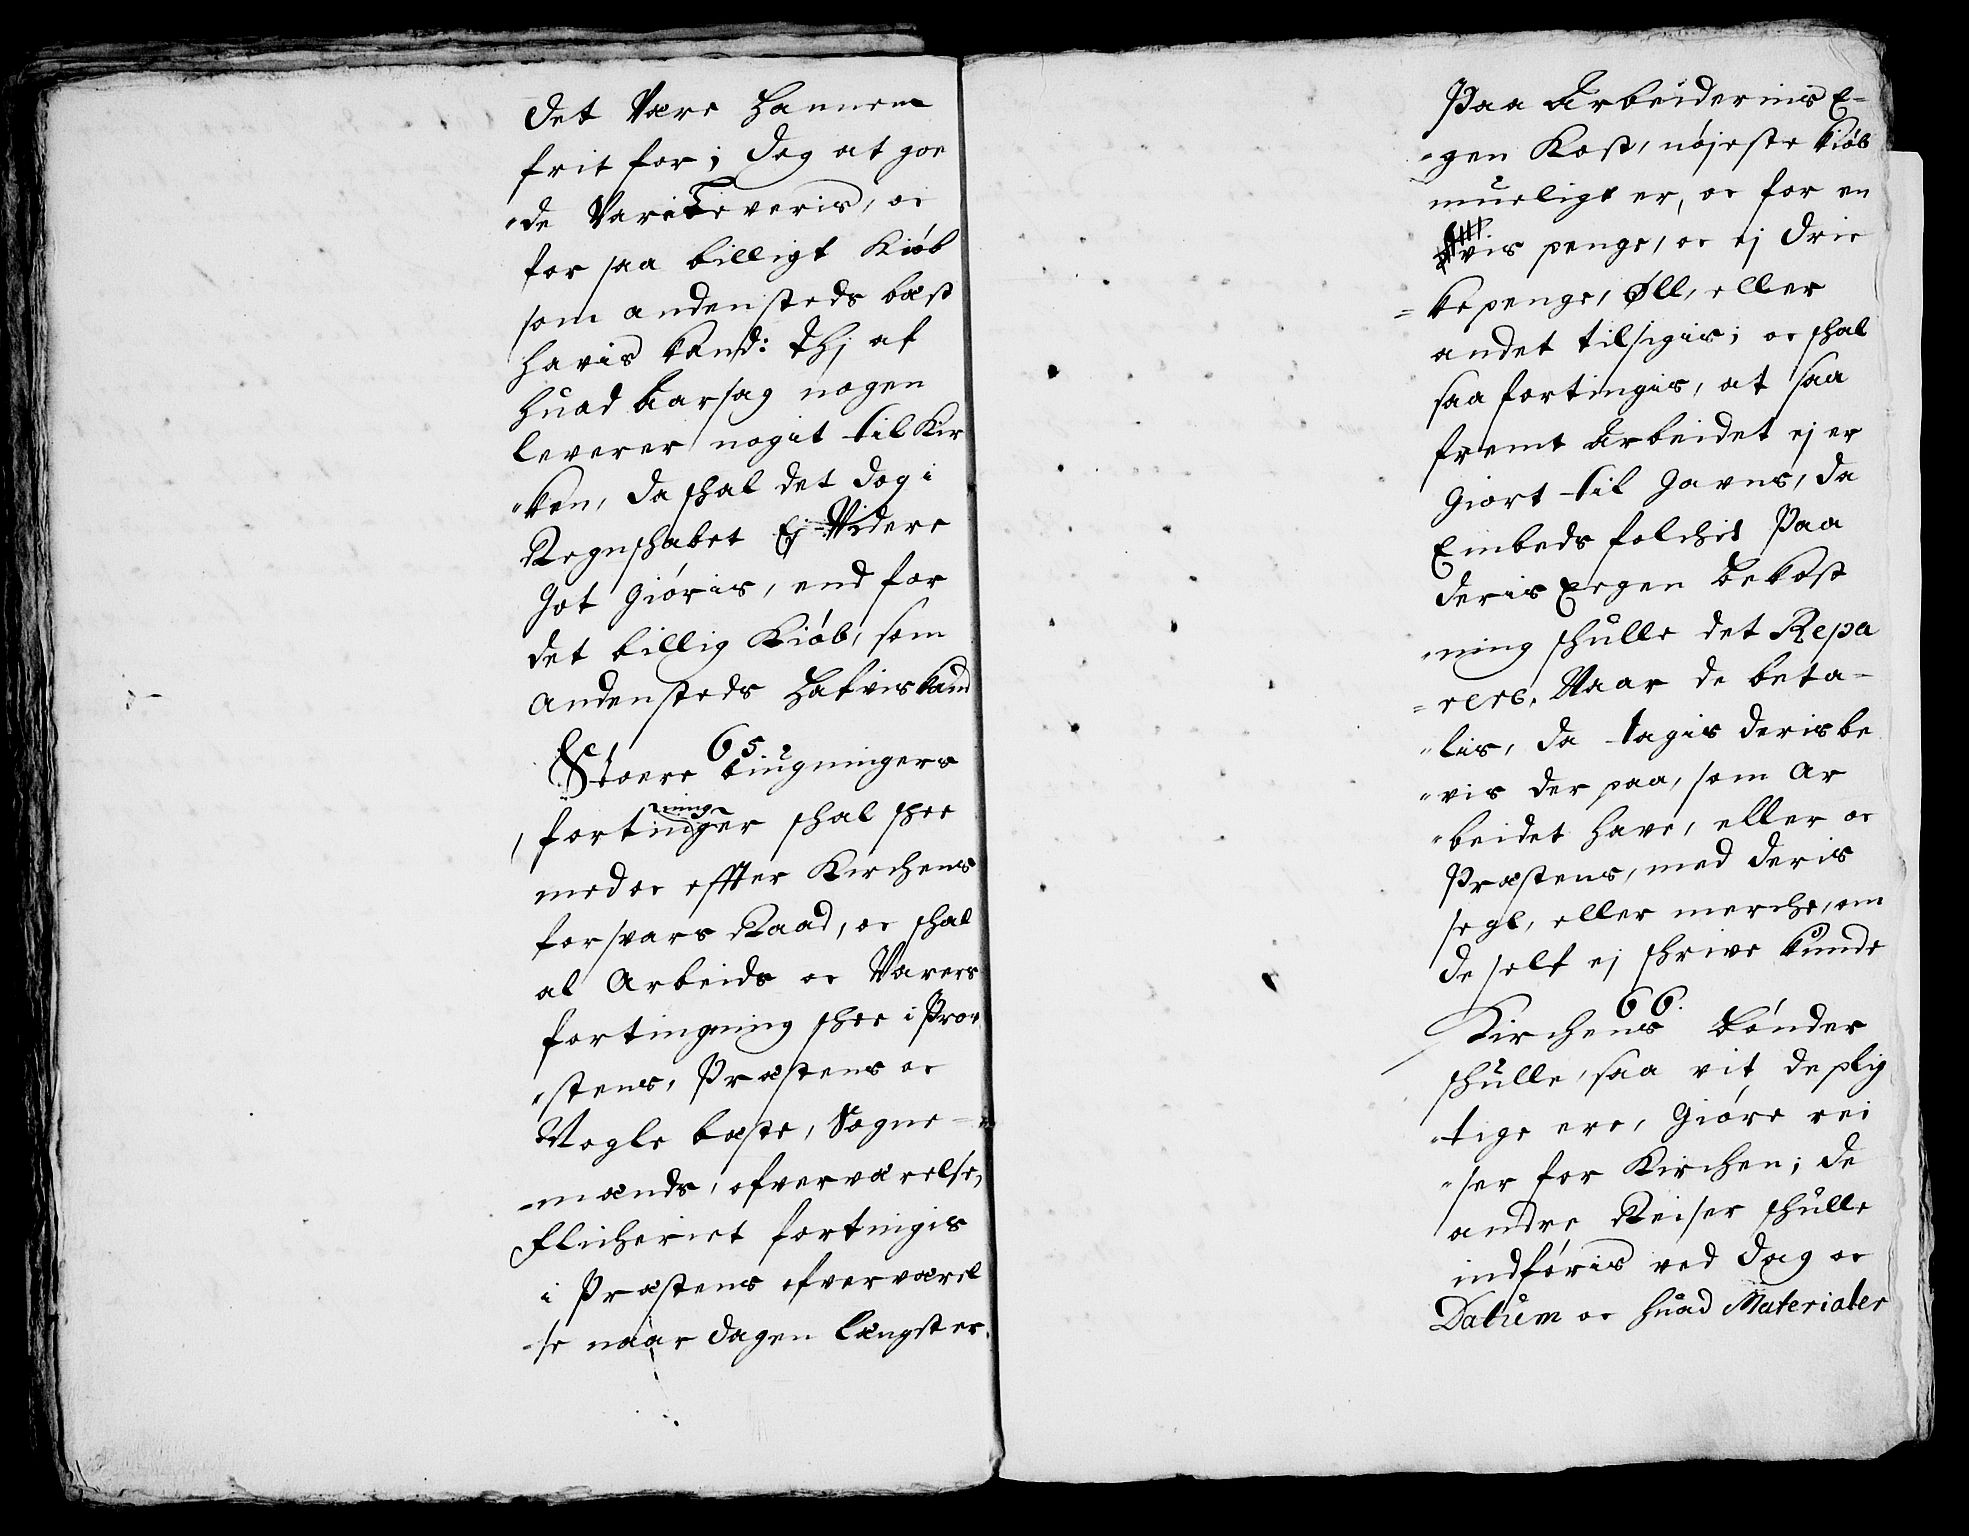 det Være Hannem
frit for; dog at goe
"de Vare Leveris, oc
for saa billigt Kiøb
som andensteds bæst
havis kand: thj af
huad Aarsag nogen
leverer nogit til Kir
"ken, da skal det dog i
Regnskabet Ej Videre
Got Giøris, end for
det billig Kiøb, som
andensteds Hafvis kand
65.
Stoere Biugningers
fortinger ning skal skee
med oc effter Kirchens
forsvars Raad, oc skal
al Arbeids oc Varers
fortingning skee i Proe
"stens, Præstens oc
Nogle bæste, Sogne-
-mænds, ofverværelse,
Flicheriet fortingis
i Præstens ofverværel
-se naar dagen længst er.
Paa Arbeiderens E-
-gen Kost, nøjeste Kiøb
mueligt er, oc for en
vis penge, oc ej dric
=kepenge, Øll, eller
andet tilsigis; oc skal
saa fortingis, at saa
fremt Arbeidet ej er
Giort til Gavns, da
Embeds folchis Paa
deris Eegen Bekost
"ning skulle det Repa
=rere. Naar de beta-
"lis, da tagis deris be
"vis der paa, som Ar
"beidet have, eller oc
Præstens, med deris
segl, eller merche, om
de self ej skrive kunde
66.
Kirchens Bønder
skulle, saa vit de plig
"tige ere, Giøre rei
"ser for Kirchen; de
andre Reiser skulle
indføris ved dag oc
Datum oc huad Materialer